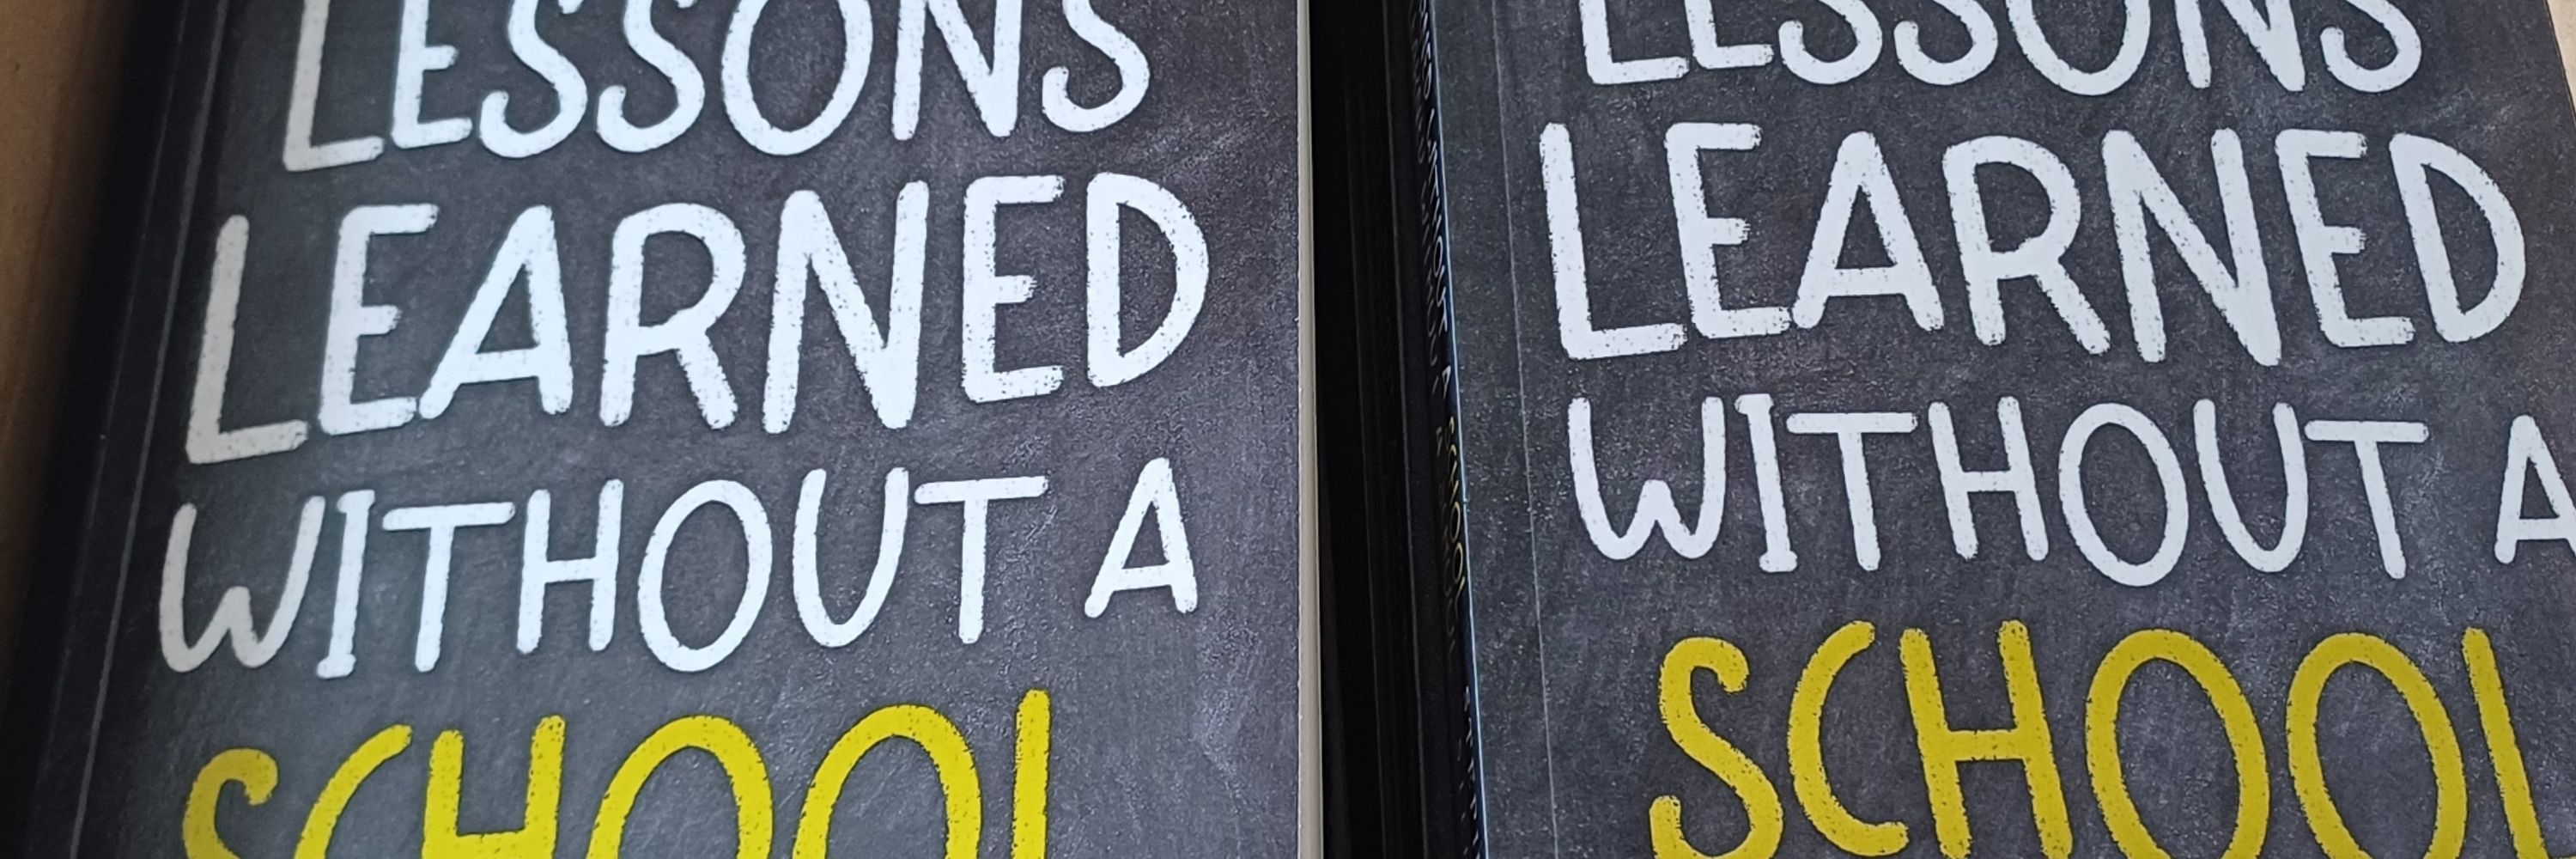 LESSONS
LEARNED
WITHOUT A
SCHOOL
LESSONS
LEARNED
WITHOUT A
SCHOOL